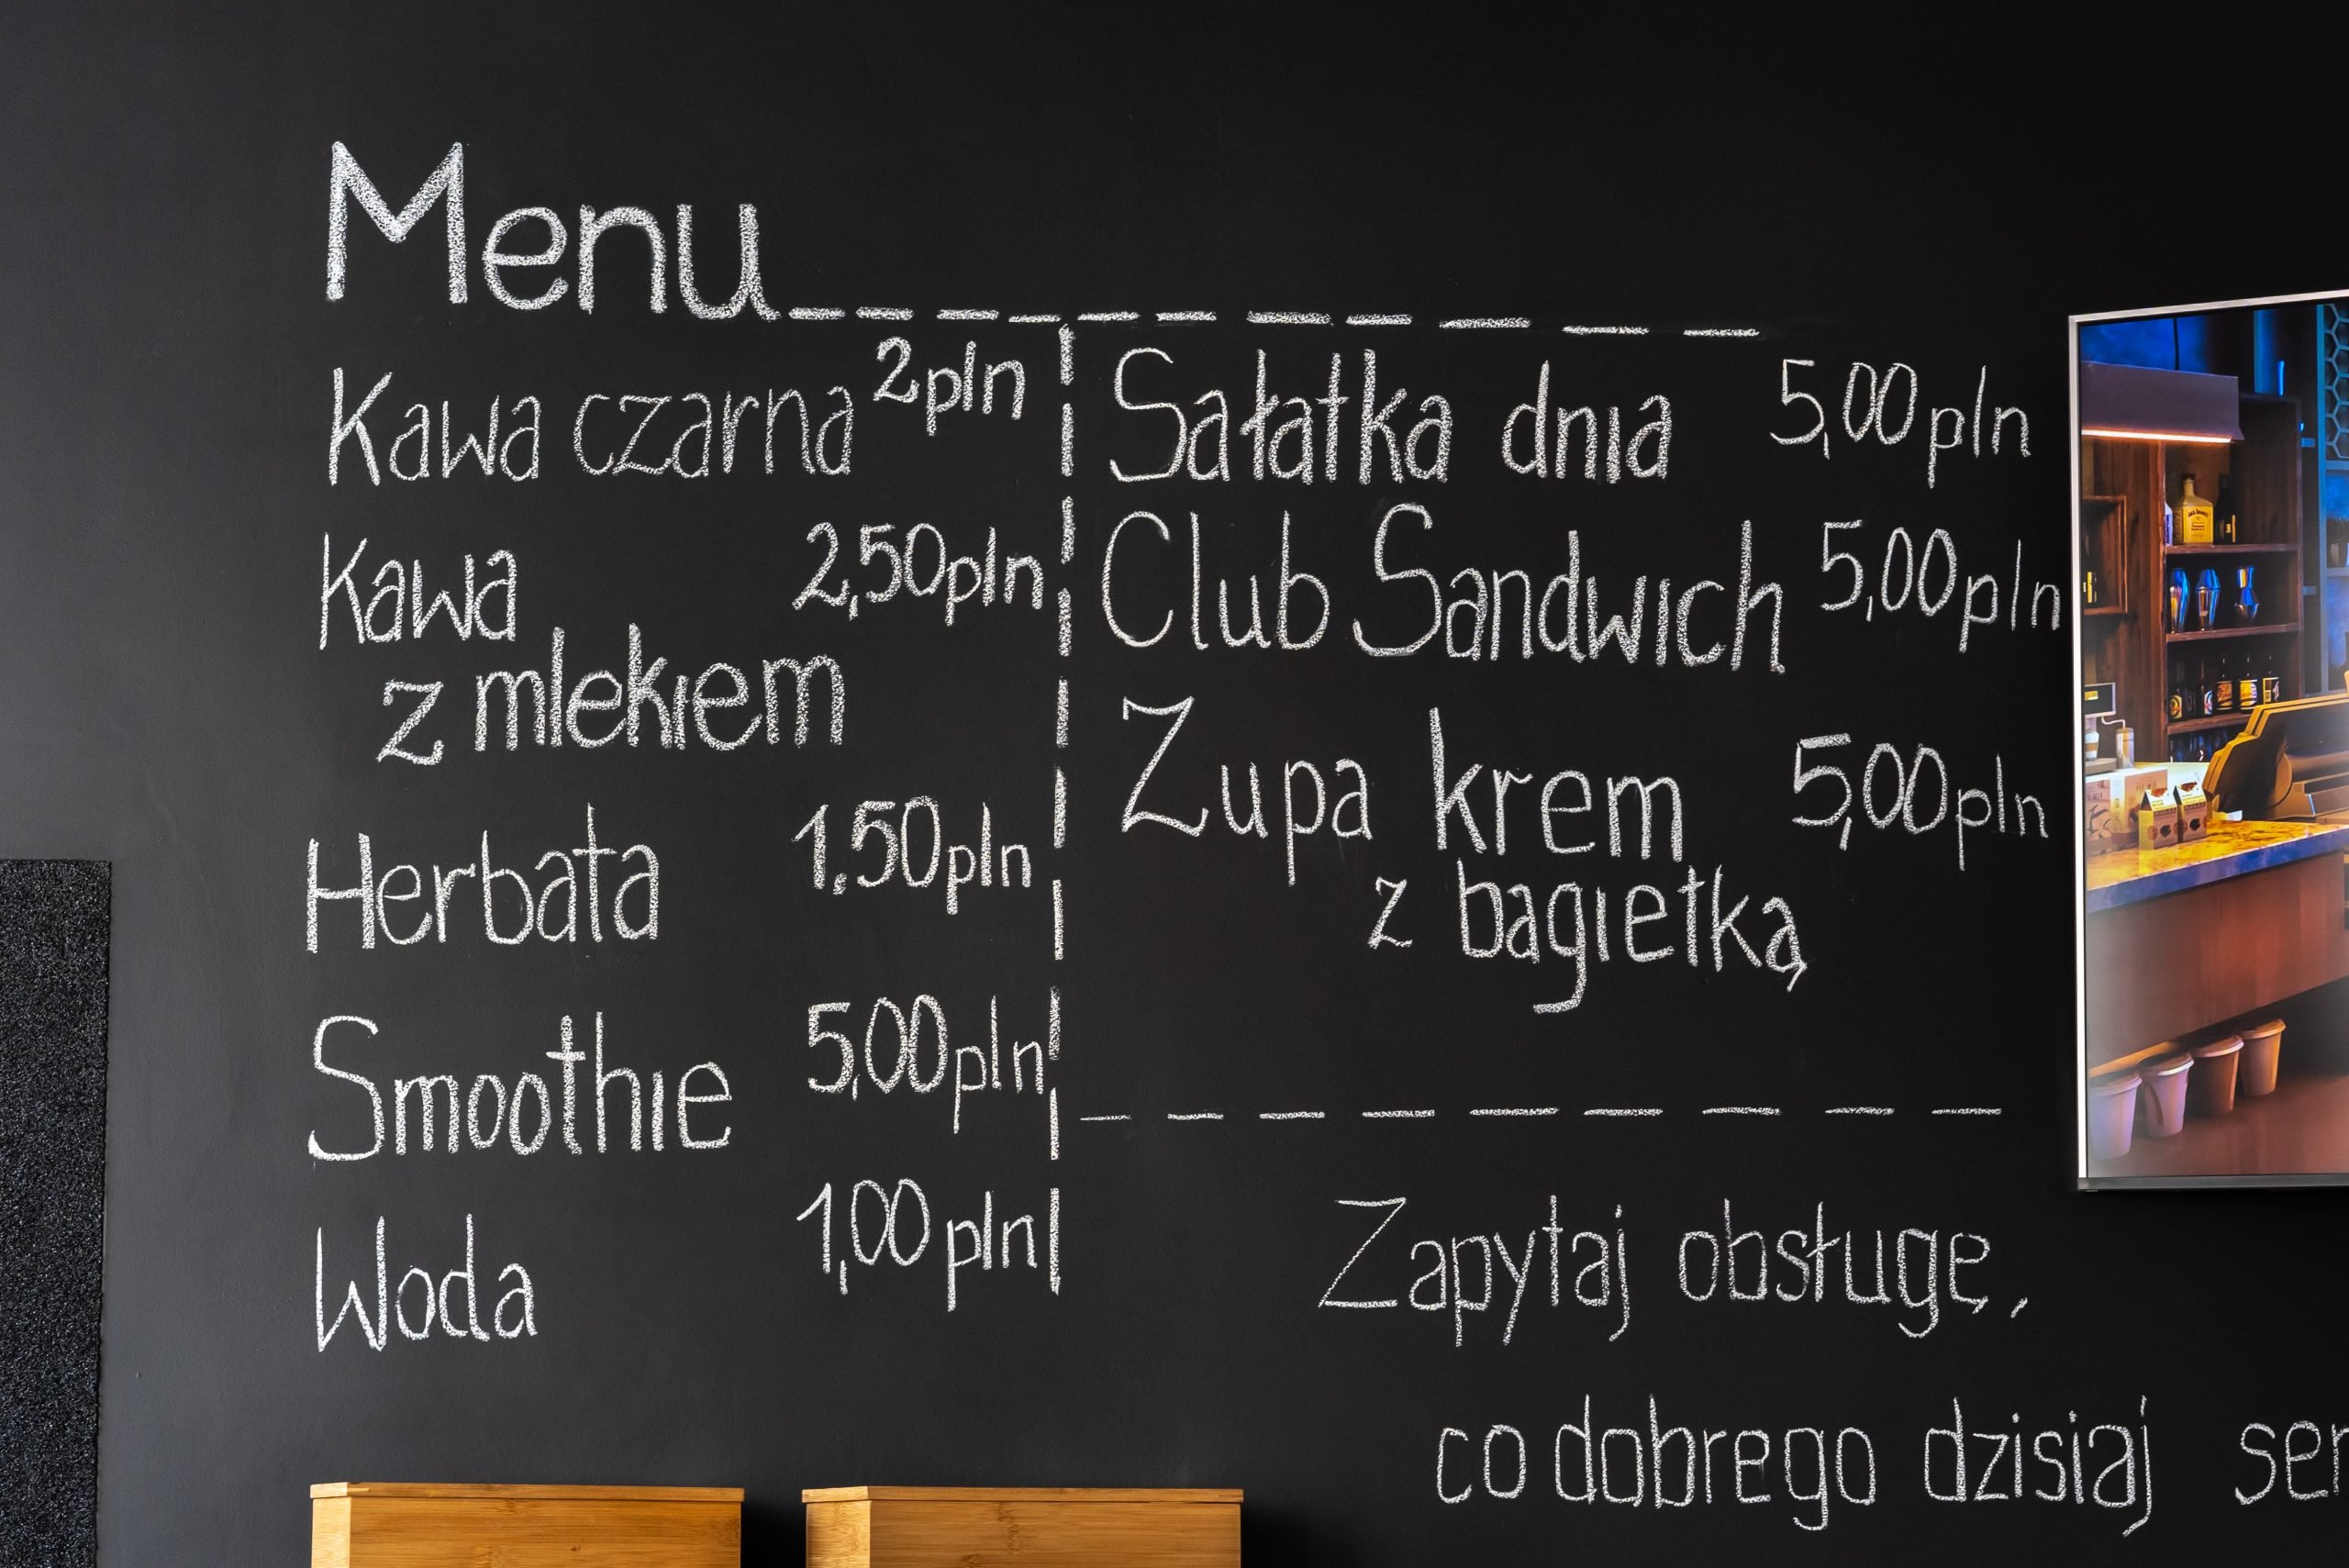 Menu
Kawa czarna 2pln
Kawa 2,50pln
z mlekiem
Herbata 1.50pln
Smoothie 5,00pln
Woda 1,00 pln
Sałatka dnia 5,00 pln
Club Sandwich 5,00 pln
Zupa krem 5,00pln
z bagietką
Zapytaj obsługę,
co dobrego dzisiaj